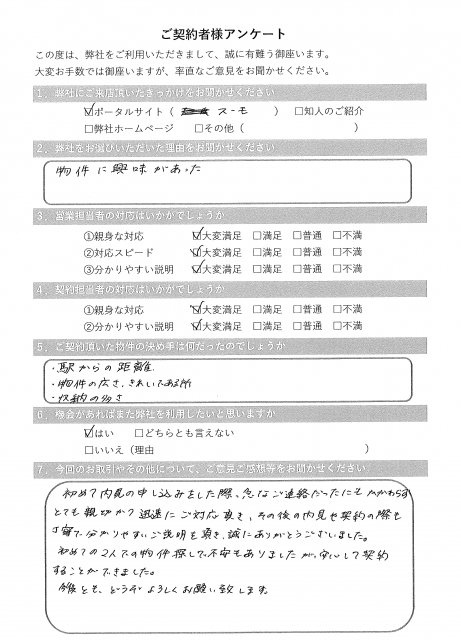 ご契約者様アンケート
この度は、弊社をご利用いただきまして、誠に有難う御座います。
大変お手数では御座いますが、率直なご意見をお聞かせください。
1．弊社にご来店頂いたきっかけをお聞かせください
☑ポータルサイト（ スーモ ） □知人のご紹介
□弊社ホームページ □その他（ ）
2．弊社をお選びいただいた理由をお聞かせください
物件に興味があった
3．営業担当者の対応はいかがでしょうか
①親身な対応 ☑大変満足 □満足 □普通 □不満
②対応スピード ☑大変満足 □満足 □普通 □不満
③分かりやすい説明 ☑大変満足 □満足 □普通 □不満
4．契約担当者の対応はいかがでしょうか
①親身な対応 ☑大変満足 □満足 □普通 □不満
②分かりやすい説明 ☑大変満足 □満足 □普通 □不満
5．ご契約頂いた物件の決め手は何だったのでしょうか
・駅からの距離
・物件の広さ、きれいである所
・収納の多さ
6．機会があればまた弊社を利用したいと思いますか
☑はい □どちらとも言えない
□いいえ（理由 ）
7．今回のお取引やその他について、ご意見ご感想等をお聞かせください
初めて内見の申し込みをした際、急なご連絡だったにもかかわらず
とても親切かつ迅速にご対応頂き、その後の内見や契約の際も
丁寧で分かりやすいご説明を頂き、誠にありがとうございました。
初めての2人での物件探しで不安もありましたが、安心して契約
することができました。
今後とも、どうぞよろしくお願い致します。